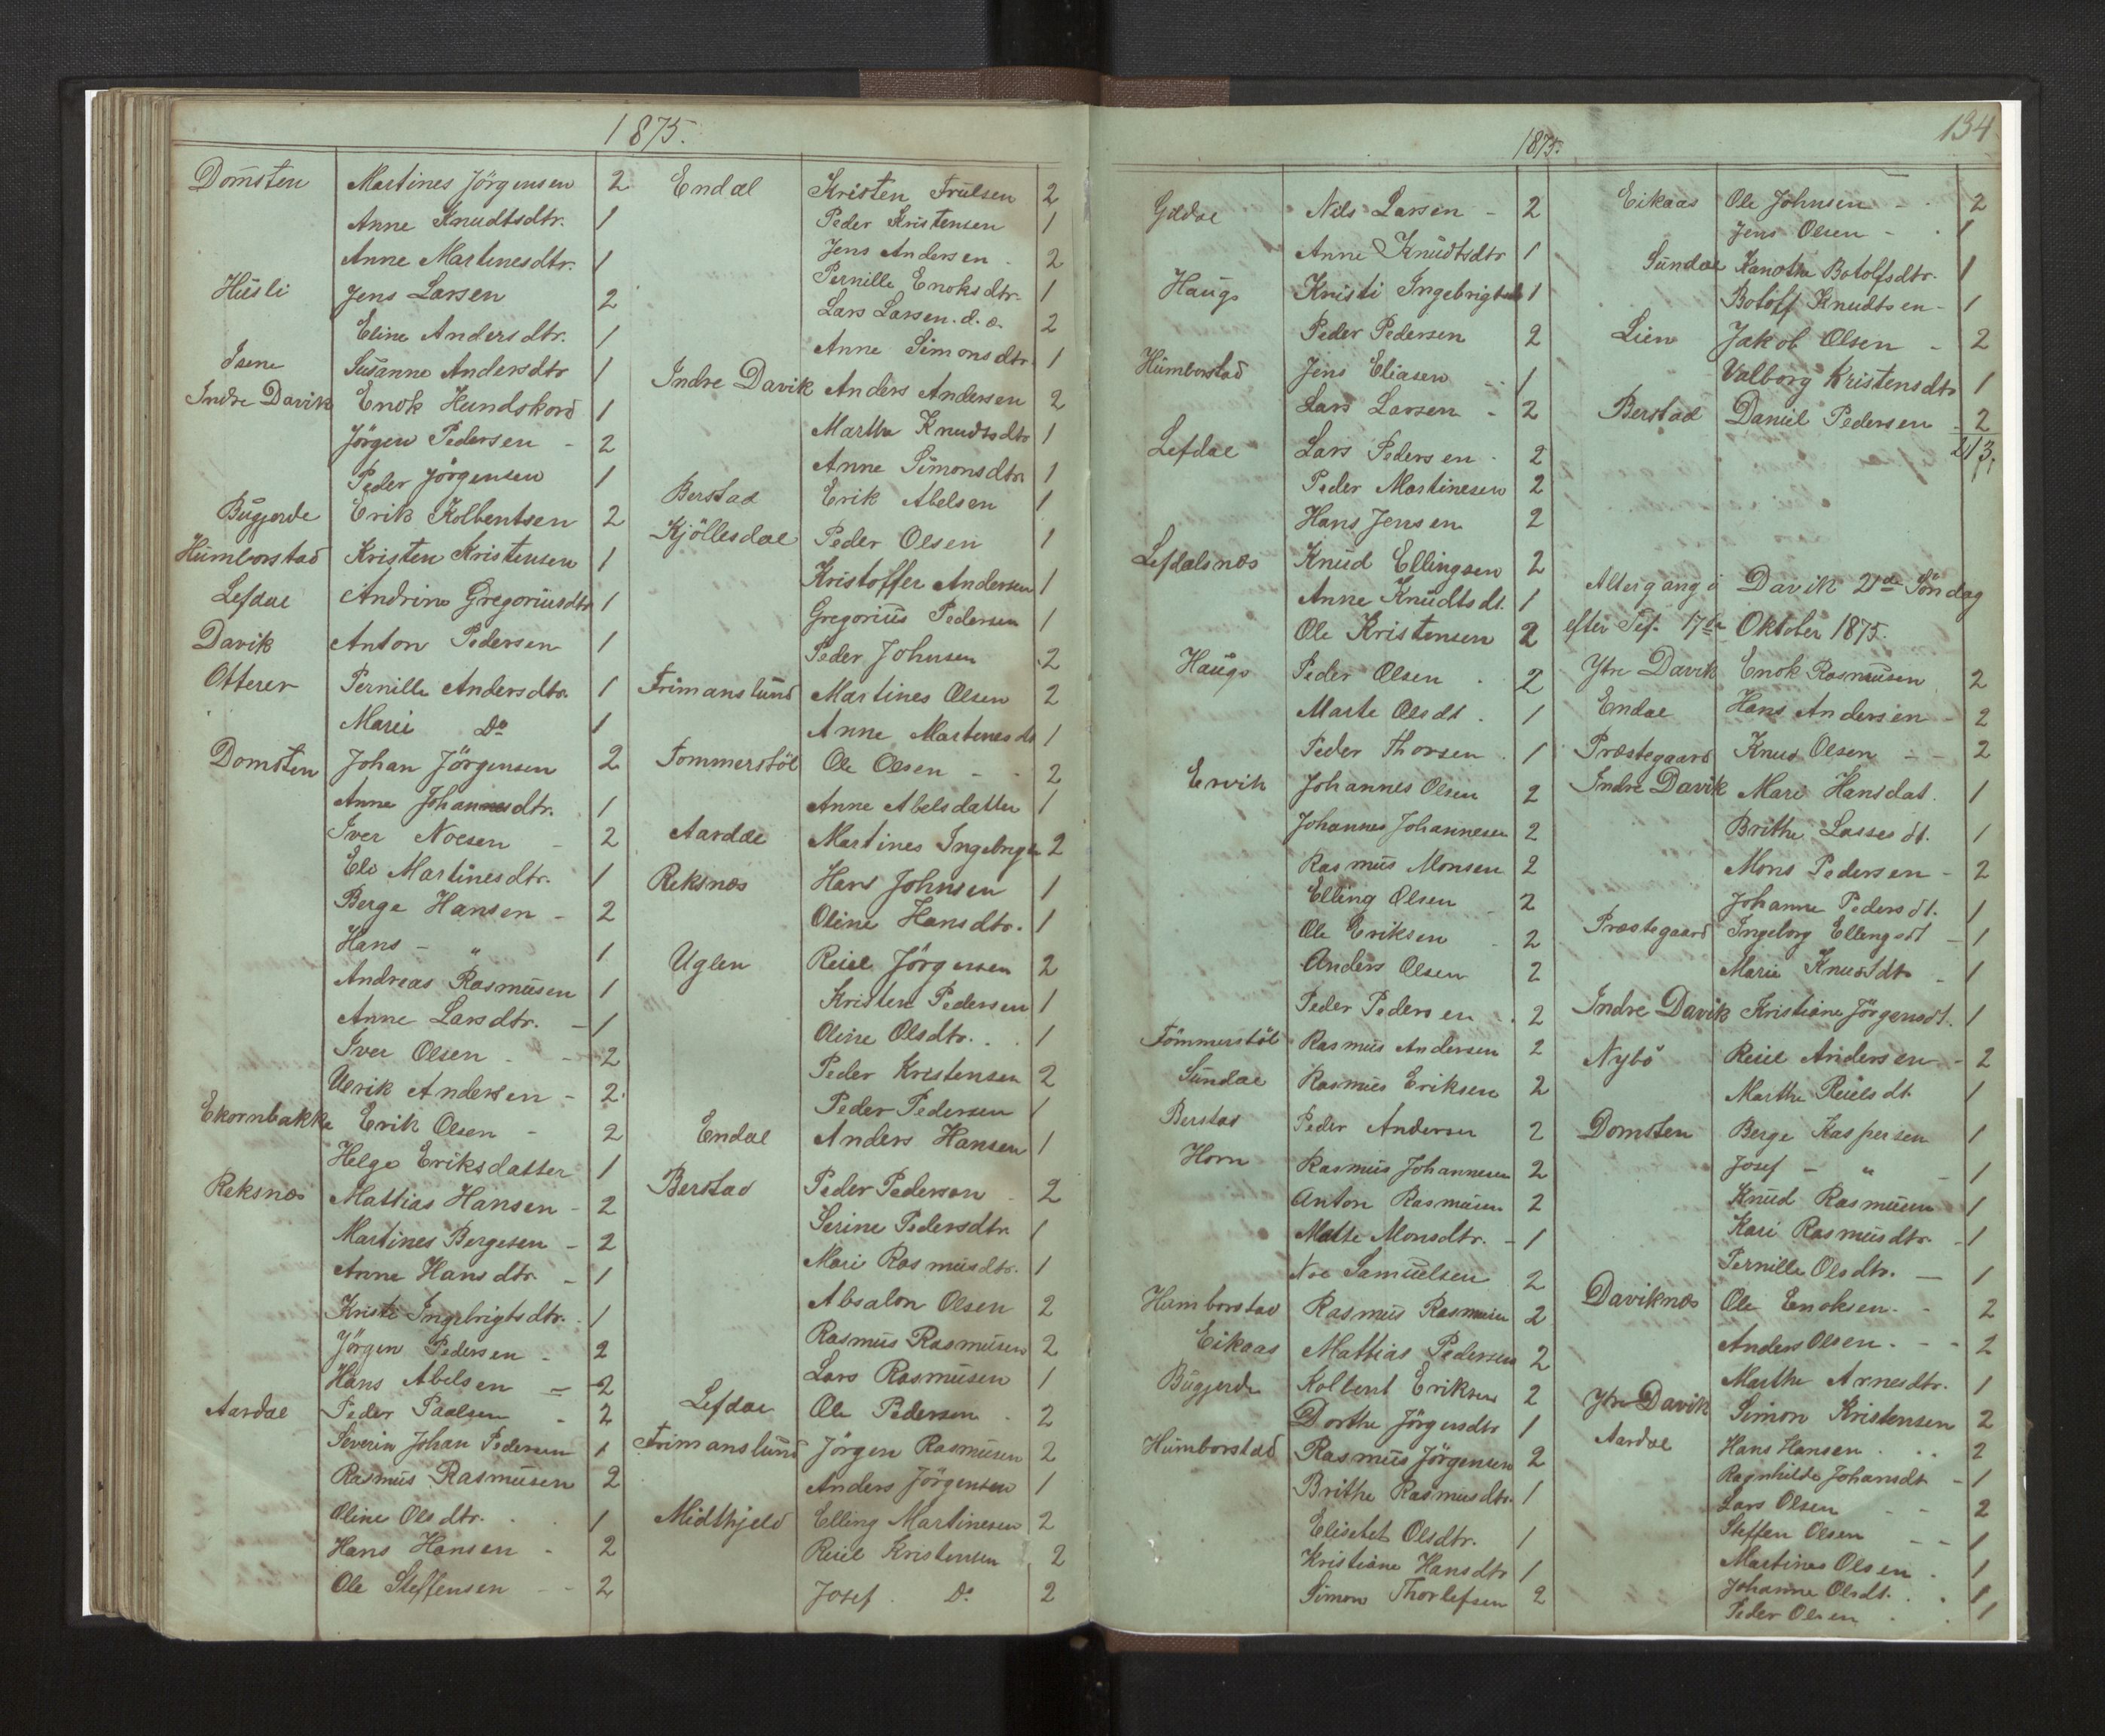 1875.
Domsten Martines Jörgensen 2
Anne Knudtsdtr. 1
Anne Martinesdtr. 1
Husli Jens Larsen 2
Eline Andersdtr. 1
Isene Susanne Andersdtr 1
Indre Davik Enok Hundskord 1
Jörgen Pedersen - 2
Peder Jörgensen 1
Bugjerde Erik Kolbentsen 2
Humborstad Kristen Kristensen 1
Lefdal Andrine Gregoriusdtr 1
Davik Anton Pedersen 1
Otterer Pernille Andersdtr. 1
Marie Do 1
Domsten Johan Jörgensen 2
Anne Johannesdtr. 1
Iver Noesen - 2
Eli Martinesdtr. 1
Berge Hansen - 2
Hans - " 1
Andreas Rasmusen 1
Anne Larsdtr. - 1
Iver Olsen - - 2
Ulrik Andersen - 2.
Ekornbakke Erik Olsen - 2
Helge Eriksdatter 1
Reksnes Mattias Hansen - 2
Martines Bergesen - 2
Anne Hansdtr - 1
Kristi Ingebrigtsdtr. 1
Jörgen Pedersen - 2
Hans Abelsen - 2
Aardal Peder Paalsen - 2
Severin Johan Pedersen 1
Rasmus Rasmusen 2
Oline Olsdtr. . . 1
Hans Hansen - 2
Ole Steffensen - - 2
Endal Kristen Trulsen 2
Peder Kristensen 1
Jens Andersen - 2
Pernille Enoksdtr. 1
Lars Larsen. d. æ. 2
Anne Simonsdtr. 1
Indre Davik Anders Andersen 2
Marthe Knudtsdtr 1
Anne Simonsdtr. 1
Berstad Erik Abelsen 1
Kjöllesdal Peder Olsen 1
Kristoffer Andersen 1
Gregorius Pedersen 1
Peder Johnsen 2
Frimanslund Martines Olsen 2
Anne Martinesdt 1
Tommerstöl Ole Olsen - - 2
Anne Abelsdatter 1
Aardal Martines Ingebrigts 2
Reksnes Hans Johnsen 1
Oline Hansdtr. 1
Uglen Reiel Jörgensen 2
Kristen Pedersen 1
Oline Olsdtr. . . 1
Peder Kristensen 2
Peder Pedersen 1
Endal Anders Hansen 1
Berstad Peder Pedersen - 2
Serine Pedersdtr. 1
Mari Rasmusdtr. 1
Absalon Olsen 2
Rasmus Rasmusen 2
Lars Rasmusen 1
Lefdal Ole Pedersen . 2
Frimanslund Jörgen Rasmusen 2
Anders Jörgensen 1
Midthjeld Elling Martinesen 2
Reiel Kristensen 2
Josef . Do 2
134
1875.
Gildal Nils Larsen - 2
Anne Knudtsdtr 1
Haugs Kristi Ingebrigtsdt 1
Peder Pedersen 2
Humborstad Jens Eliasen - 1
Lars Larsen - 2
Lefdal Lars Pedersen - 2
Peder Martinesen 2
Hans Jensen 2
Lefdalsnes Knud Ellingsen 2
Anne Knudtsdt. 1
Ole Kristensen 2
Haugs Peder Olsen . 2
Marte Olsdt . 1
Peder Thorsen . 1
Ervik Johannes Olsen 2
Johannes Johannesen 2
Rasmus Monsen 2
Elling Olsen - 2
Ole Eriksen - 2
Anders Olsen 2
Peder Pedersen . 2
Tömmerstöl Rasmus Andersen 2
Sundal Rasmus Eriksen 2
Berstad Peder Andersen 2
Horn Rasmus Johannesen 2
Anton Rasmusen 2
Matte Monsdtr. - 1
Noe Samuelsen 2
Humborstad Rasmus Rasmusen 2
Eikaas Mattias Pedersen 2
Bugjerde Kolbent Eriksen 2
Dorthe Jörgensdtr 1
Humborstad Rasmus Jörgensen 2
Brithe Rasmusdtr. 1
Elisebet Olsdtr. 1
Kristiane Hansdtr 1
Simon Thorlefsen 2
Eikaas Ole Johnsen - . 2
Jens Olsen - . 1
Sundal Botolfsdtr. 1
Botolf Knudtsen - 1
Lien Jakob Olsen - 2
Valborg Kristensdtr 1
Berstad Daniel Pedersen - 2
213.
Altergang i Davik 21de Söndag
efter Tref. 17de Oktober 1875.
Ytre Davik Enok Rasmusen 2
Endal Hans Andersen - 2
Præstegaard Knud Olsen - - 2
Indre Davik Mari Hansdat. 1
Brithe Lassesdt. 1
Mons Pedersen - 2
Johanne Pedersdt. 1
Præstegaard Ingeborg Ellingsdt - 1
Marie Knudsdtr - 1
Indre Davik Kristiane Jörgensdt. 1
Nybö Reiel Andersen - 2
Marthe Reielsdt. 1
Domsten Berge Kaspersen 1
Josef - " - 1
Knud Rasmusen 1
Kari Rasmusdtr. - 1
Pernille Olsdtr. - 1
Daviknes Ole Enoksen. - 2
Anders Olsen. - - 2
Marthe Arnesdtr. 1
Ytre Davik Simon Kristensen 2
Aardal Hans Hansen . . . 2
Ragnhilde Johansdt - 1
Lars Olsen - - 2
Steffen Olsen - - 1
Martines Olsen . 1
Johanne Olsdt. . . 1
Peder Olsen . . 1